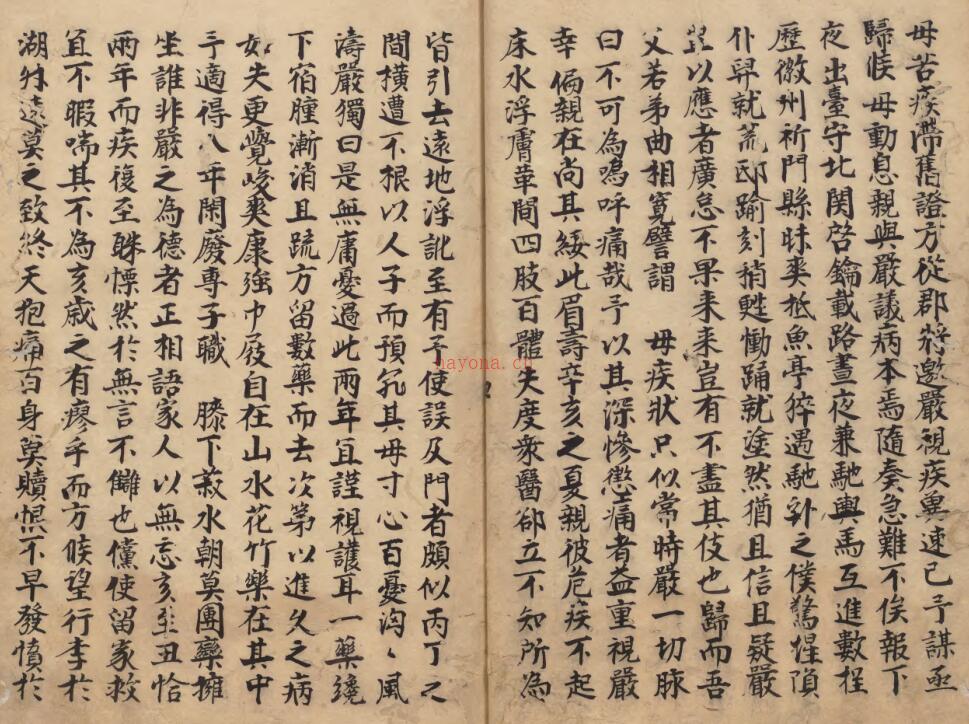 母苦疾滯舊證方從郡將邀嚴視疾兾速已予謀亟
歸候母動息親與嚴議病本焉隨奏急難不俟報下
夜出臺守北関啓鑰載路晝夜兼馳輿馬互進數程
歷徽州祈門縣昧爽抵魚亭猝遇馳訃之僕驚惶隕
仆舁就荒邸踰刻稍甦慟踊就塗然猶且信且疑嚴
豈以應者廣怠不果来来豈有不盡其伎也歸而吾
父若弟曲相寛譬謂 母疾狀只似常時嚴一切脉
曰不可為嗚呼痛哉予以其深慘懲痛者益重視嚴
幸偏親在尚其綏此眉壽辛亥之夏親彼危疾不起
床水浮膚革間四肢百體失度衆醫郤立不知所為
皆引去遠地浮訛至有予使誤及門者頗似丙丁之
間横遭不根以人子而預㐫其母寸心百憂洶〻風
濤嚴獨曰是無庸憂過此兩年冝謹視護耳一藥纔
下宿腫漸消且䟽方留數藥而去次第以進久之病
如失更覺峻爽康強巾屐自在山水花竹樂在其中
予適得八年閑廢專子職 膝下菽水朝莫團欒擁
坐誰非嚴之為德者正相語家人以無忘亥至丑恰
兩年而疾復至眛慄然於無言不讎也儻使留家救
冝不暇喘其不為亥歳之有瘳乎而方睽望行李於
湖外遠莫之致終天抱痛百身莫贖恨不早發憤於
nayona.cn